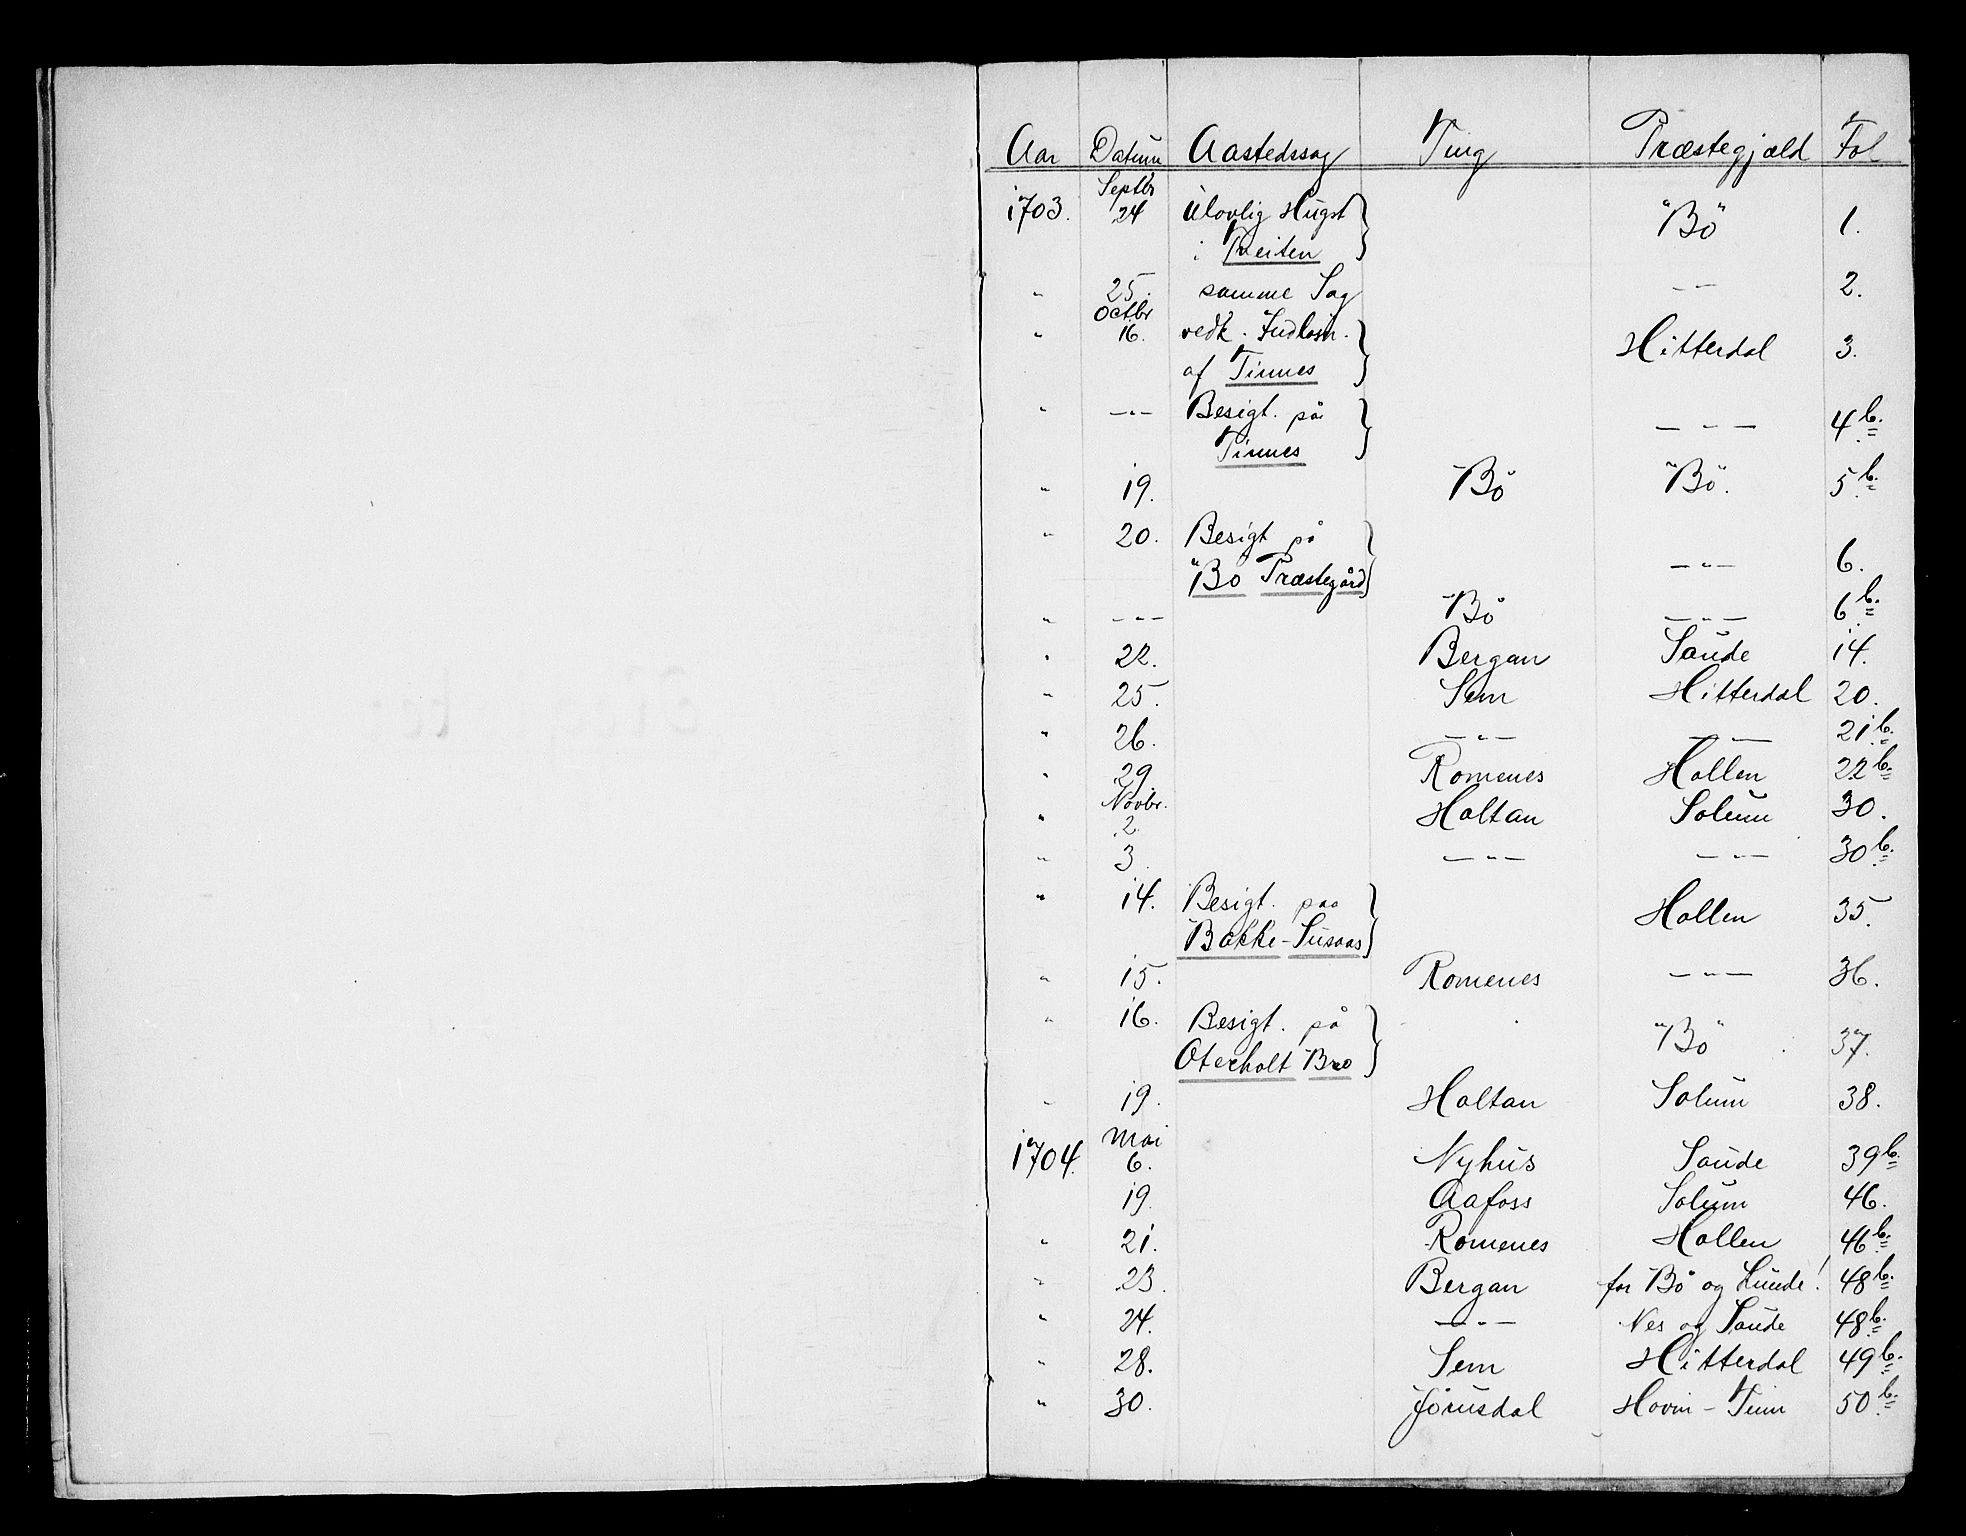 Aar Datum Aastedssag Ting Præstegjæld Fol
Septbr
1703. 24 Ulovlig Hugst "Bö" 1.
i Reiten
" 25. samme Sag - - 2.
Octbr
" 16. vedk. Hitterdal 3.
af Tinnes
" -"- Besigt. på -"- 4 b.
Tinnes
" 19. Bö Bö. 5 b.
" 20. Besigt på -"- 6.
Bö Præstegård
" -"- Bö -"- 6 b.
" 22. Bergan Saude 14.
" 25. Sem Hitterdal 20.
" 26. -"- -"- 21 b.
" 29 Romenes Hollen 22 b.
Novbr.
" 2. Holtan Solum 30.
" 3. -"- -"- 30 b.
" 14. Besigt. paa Hollen 35.
Bakke-Susaas
" 15. Romenes -"- 36.
" 16. Besigt. på "Bö" 37.
Oterholt Bro
" 19. Holtan Solum 38.
Mai
1704. 6. Nyhus Saude 39 b.
19. Aafoss Solum 46.
" 21. Romenes Hollen 46 b.
" 23. Bergan for Bö og Lunde! 48 b.
" 24. -"- Nes og Saude 48 b.
" 28. Sem Hitterdal 49 b.
" 30. Jörusdal Hovin - Tinn 50 b.